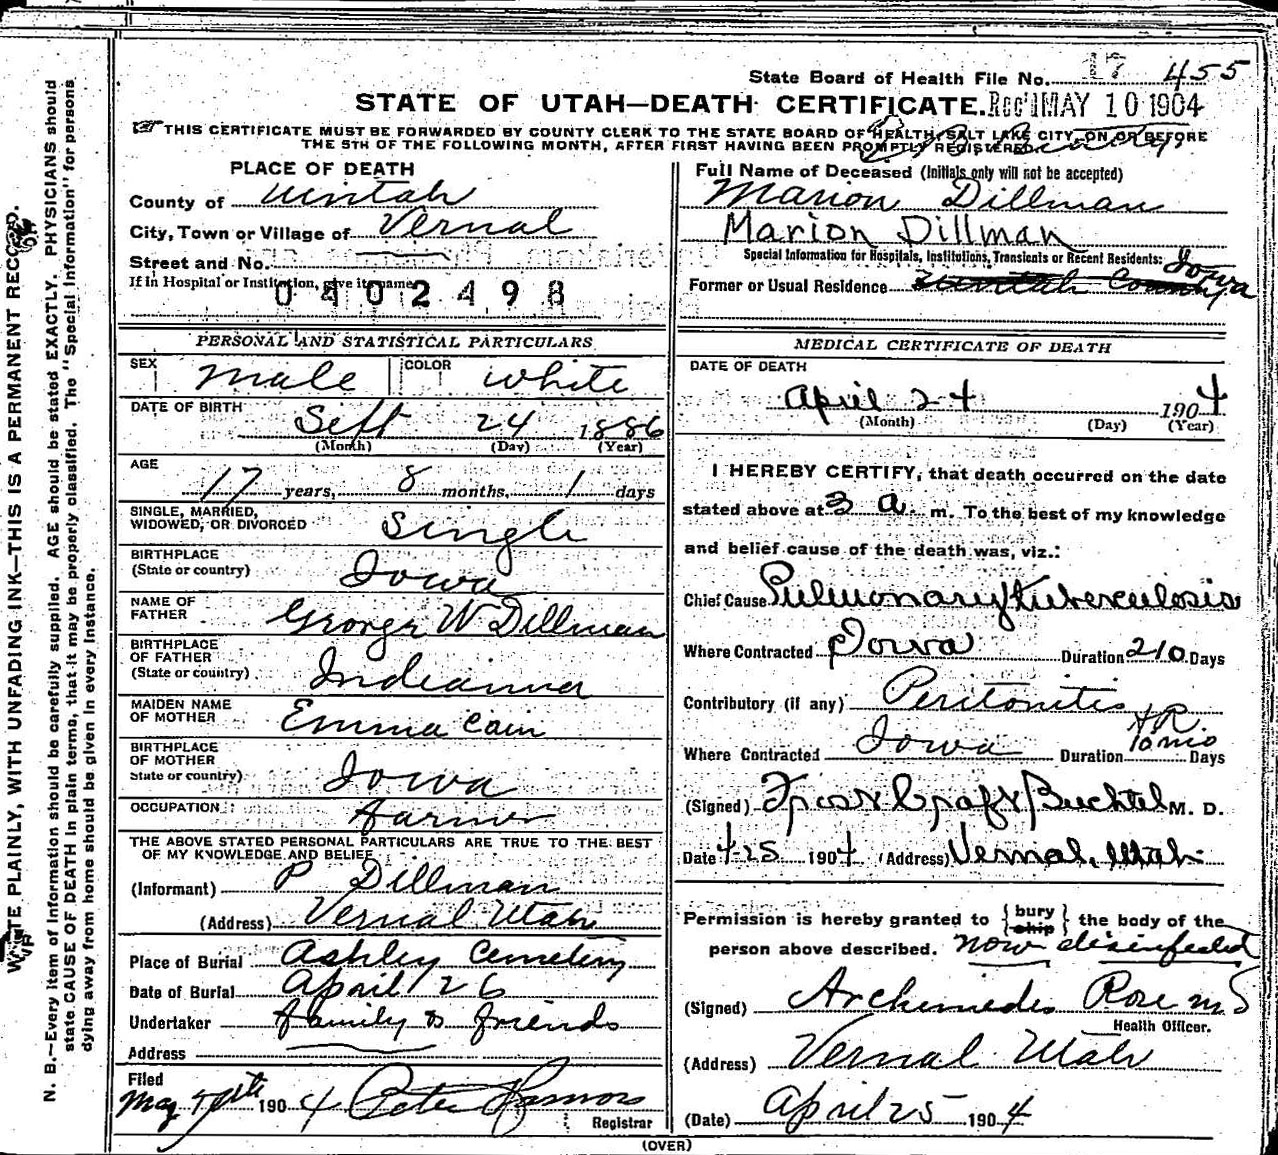 State Board of Health File No. 17 455
STATE OF UTAH—DEATH CERTIFICATE. Rec'd MAY 10 1904
THIS CERTIFICATE MUST BE FORWARDED BY COUNTY CLERK TO THE STATE BOARD OF HEALTH, SALT LAKE CITY, ON OR BEFORE
THE 5TH OF THE FOLLOWING MONTH, AFTER FIRST HAVING BEEN PROMPTLY REGISTERED.
PLACE OF DEATH
County of Uintah
City, Town or Village of Vernal
Street and No.
If in Hospital or Institution, give its name
0402498
Full Name of Deceased (Initials only will not be accepted)
Marion Dillman
Marion Dillman
Special Information for Hospitals, Institutions, Transients or Recent Residents:
Former or Usual Residence Uintah County Iowa
PERSONAL AND STATISTICAL PARTICULARS
SEX male COLOR white
DATE OF BIRTH Sept 24 1886
(Month) (Day) (Year)
AGE
17 years, 8 months, 1 days
SINGLE, MARRIED,
WIDOWED, OR DIVORCED Single
BIRTHPLACE
(State or country) Iowa
NAME OF
FATHER George W Dillman
BIRTHPLACE
OF FATHER
(State or country) Indianna
MAIDEN NAME
OF MOTHER Emma Cain
BIRTHPLACE
OF MOTHER
State or country) Iowa
OCCUPATION Farmer
THE ABOVE STATED PERSONAL PARTICULARS ARE TRUE TO THE BEST
OF MY KNOWLEDGE AND BELIEF
(Informant) P Dillman
(Address) Vernal Utah
Place of Burial Ashley Cemetery
Date of Burial April 26
Undertaker family & friends
Address
Filed
May 190 4 Peter
Registrar
MEDICAL CERTIFICATE OF DEATH
DATE OF DEATH
April 24 1904
(Month) (Day) (Year)
I HEREBY CERTIFY, that death occurred on the date
stated above at 3 a. m. To the best of my knowledge
and belief cause of the death was, viz.:
Chief Cause Pulmonary Tuberculosis
Where Contracted Iowa Duration 210 Days
Contributory (if any) Peritonitis
Where Contracted Iowa Duration 10 mo Days
(Signed) Bechtel M. D.
Date 4-25 1904 (Address) Vernal, Utah
Permission is hereby granted to {bury ship} the body of the
person above described. now disinfected
(Signed) Archimedes Rose M D
Health Officer.
(Address) Vernal Utah
(Date) April 25 1904
(OVER)
WRITE PLAINLY, WITH UNFADING INK—THIS IS A PERMANENT RECORD.
N. B.—Every item of information should be carefully supplied. AGE should be stated EXACTLY. PHYSICIANS should
state CAUSE OF DEATH in plain terms, that it may be properly classified. The "Special Information" for persons
dying away from home should be given in every instance.